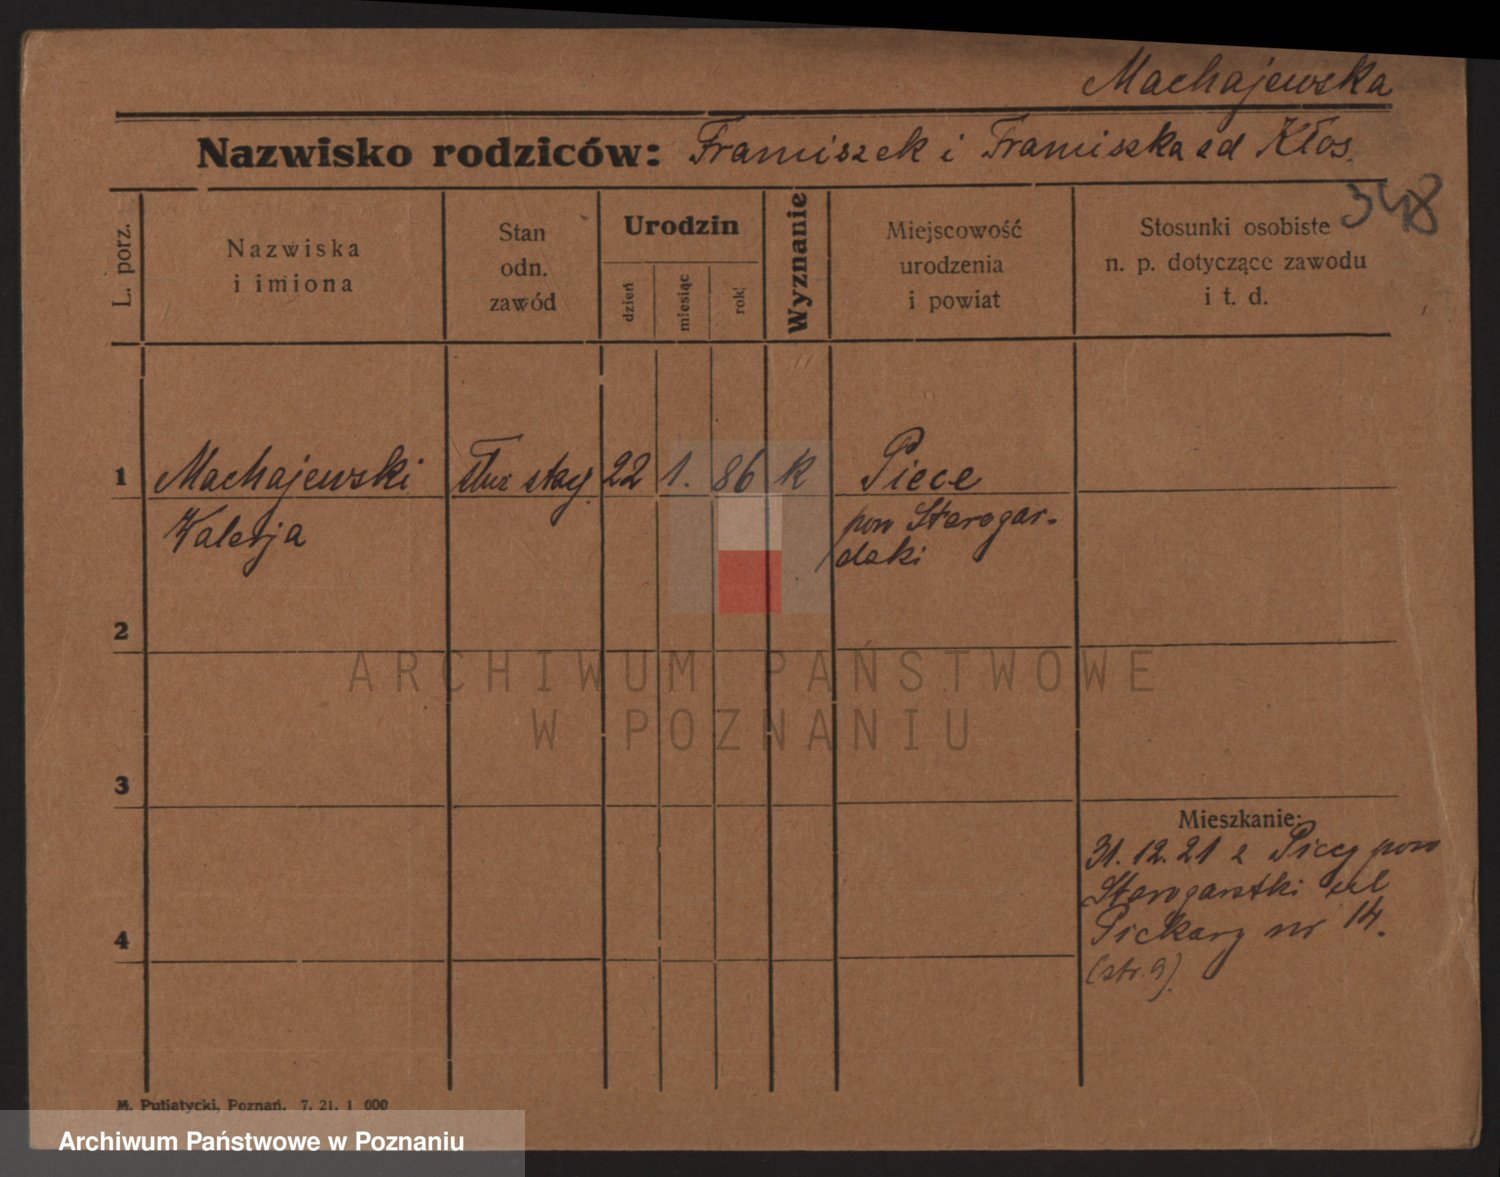 Machajewska
Nazwisko rodziców: Franciszek i Franciszka zd Kłos
348
L. porz.
Nazwiska
i imiona
Stan
odn.
zawód
Urodzin
dzień
miesiąc
rok
Wyznanie
Miejscowość
urodzenia
i powiat
Stosunki osobiste
n. p. dotyczące zawodu
i t. d.
1 Machajewski 22 1. 86 k Piece
Walerja pow Starogar-
dzki
2
3
4
Mieszkanie:
31.12.21 z Piecy pow
Starogardzki ul
Piekary nr 14.
(str. 9).
M. Putiatycki, Poznań. 7. 21. 1 000
ARCHIWUM PAŃSTWOWE
W POZNANIU
Archiwum Państwowe w Poznaniu